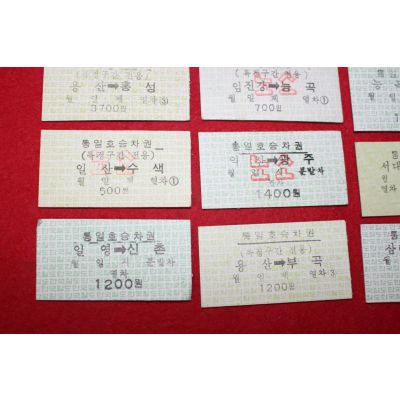 (특정구간 전용)
용 산➡홍 성
월 일 제 열차③
3700원
(특정구간 전용)
임진강➡능 곡
월 일 제 열차①
700원
통일호승차권
(특정구간 전용)
일 산➡수 색
월 일 제 열차①
500원
통일호승차권
산➡광 주
월 일 시 분발차
열차
1400원
서대
통일호승차권
일 영➡신 촌
월 일 시 분발차
열차
1200원
통일호승차권
(특정구간 전용)
용 산➡부 곡
월 일 제 열차③
1200원